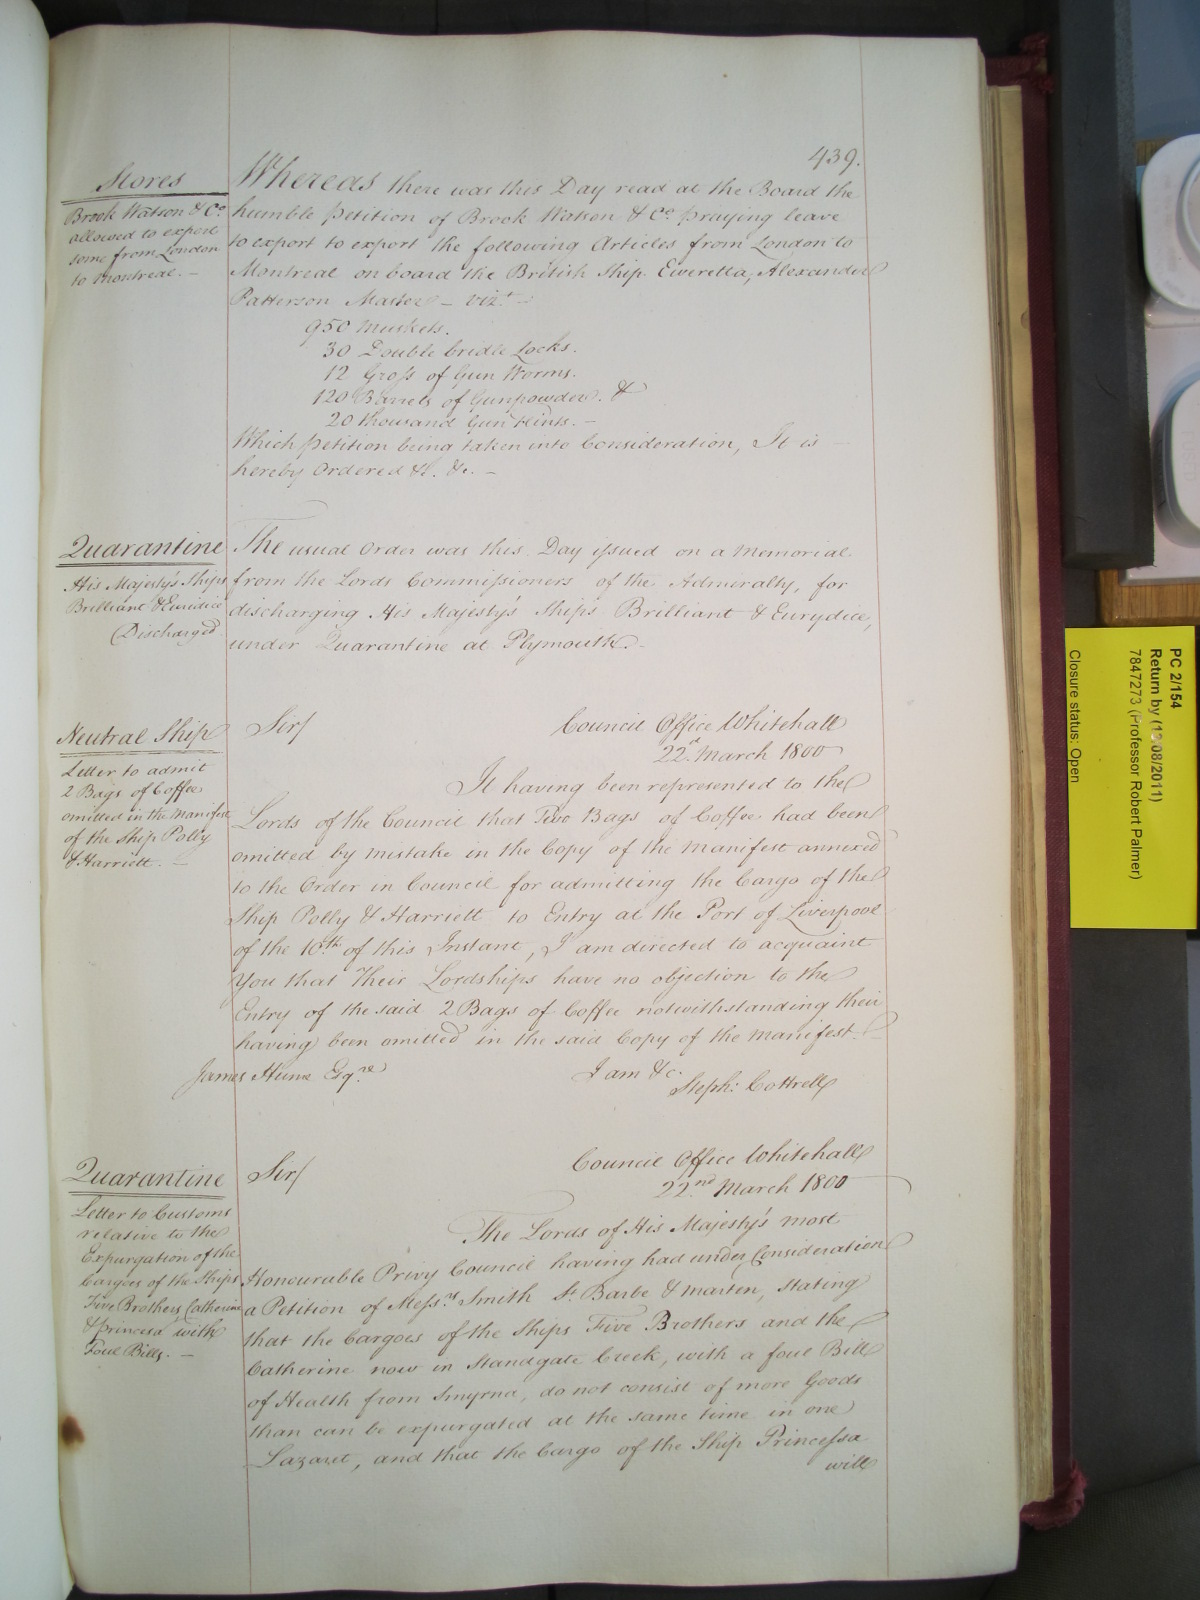 439.
Stores
Brook Watson & Co.
allowed to export
some from London
to Montreal. —
Whereas there was this Day read at the Board the
humble Petition of Brook Watson & Co. praying leave
to export to export the following Articles from London to
Montreal on board the British Ship Everetta, Alexander
Patterson Master — vizt.
950 Muskets.
30 Double bridle Locks.
12 Gross of Gun Worms.
120 Barrels of Gunpowder. &
20 thousand Gun Flints. —
Which Petition being taken into Consideration, It is —
hereby Ordered &c. &c. —
Quarantine
His Majesty's Ships
Brilliant & Euridice
Discharged
The usual Order was this Day issued on a Memorial
from the Lords Commissioners of the Admiralty, for
discharging His Majesty's Ships Brilliant & Eurydice,
under Quarantine at Plymouth. —
Neutral Ship
Letter to admit
2 Bags of Coffee
omitted in the Manifest
of the Ship Polly
& Harriett. —
Sir/
Council Office Whitehall
22d. March 1800
It having been represented to the
Lords of the Council that Two Bags of Coffee had been
omitted by mistake in the Copy of the Manifest annexed
to the Order in Council for admitting the Cargo of the
Ship Polly & Harriett to Entry at the Port of Liverpool
of the 10th. of this Instant, I am directed to acquaint
You that Their Lordships have no objection to the
Entry of the said 2 Bags of Coffee notwithstanding their
having been omitted in the said Copy of the Manifest.
I am &c.
James Hume Esqre.
Steph: Cottrell
Quarantine
Letter to Customs
relative to the
Expurgation of the
Cargoes of the Ships
Five Brothers, Catherine
& Princesa with
Foul Bills. —
Sir/
Council Office Whitehall
22nd. March 1800
The Lords of His Majesty's most
Honourable Privy Council having had under Consideration
a Petition of Messrs. Smith St. Barbe & Marten, stating
that the Cargoes of the Ships Five Brothers and the
Catherine now in Standgate Creek, with a foul Bill
of Health from Smyrna, do not consist of more Goods
than can be expurgated at the same time in one
Lazaret, and that the Cargo of the Ship Princessa
will
PC 2/154
Return by (13/08/2011)
7847273 (Professor Robert Palmer)
Closure status: Open